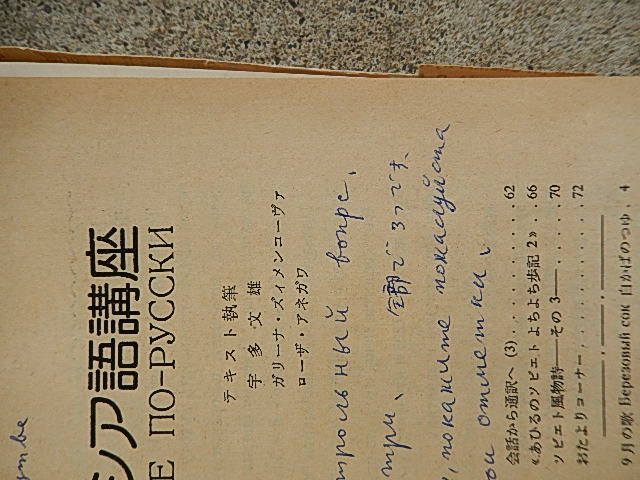 シア語講座
Е ПО-РУССКИ
テキスト執筆
宇多文雄
ガリーナ・ズィメンコーヴァ
ローザ・アネガワ
трольный вопрс.
три、 全部で3つです、
, покажите пожалуйста
ои отметки、
会話から通訳へ (3)........62
≪あひるのソビエト よちよち歩記 2≫..66
ソビエト風物詩——その3——......70
おたよりコーナー........72
9月の歌 Березовый сок 白かばのつゆ. 4